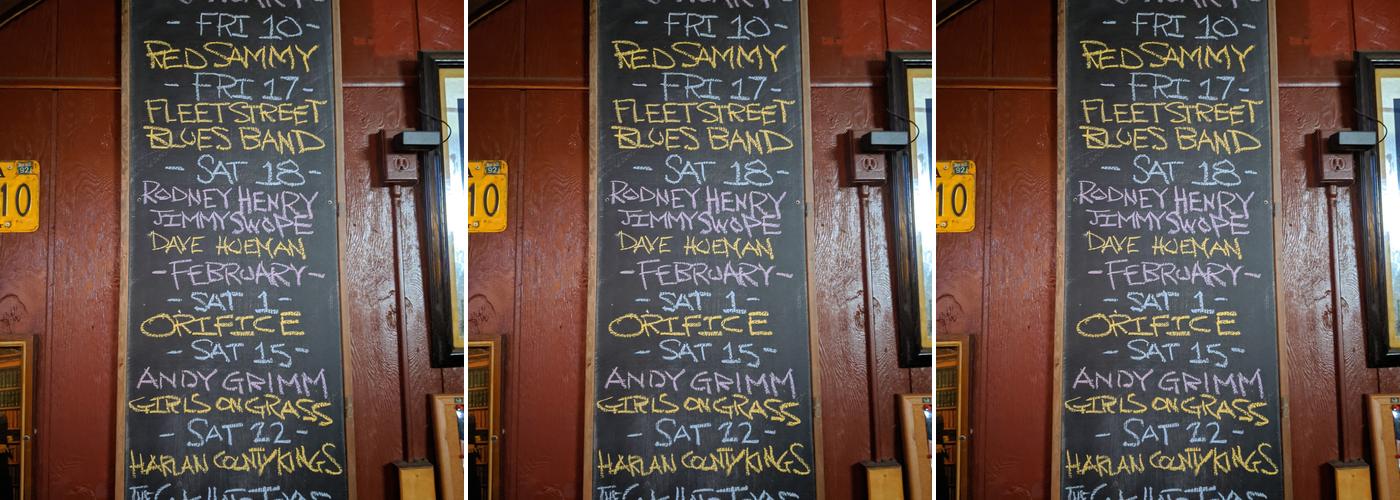 - FRI 10 -
RED SAMMY
- FRI 17 -
FLEETSTREET
BLUES BAND
- SAT 18 -
RODNEY HENRY
JIMMY SWOPE
DAVE HUEMAN
- FEBRUARY -
- SAT 1 -
ORIFICE
- SAT 15 -
ANDY GRIMM
GIRLS ON GRASS
- SAT 22 -
HARLAN COUNTY KINGS
THE
92
10
- FRI 10 -
RED SAMMY
- FRI 17 -
FLEETSTREET
BLUES BAND
- SAT 18 -
RODNEY HENRY
JIMMY SWOPE
DAVE HUEMAN
- FEBRUARY -
- SAT 1 -
ORIFICE
- SAT 15 -
ANDY GRIMM
GIRLS ON GRASS
- SAT 22 -
HARLAN COUNTY KINGS
THE
92
10
- FRI 10 -
RED SAMMY
- FRI 17 -
FLEETSTREET
BLUES BAND
- SAT 18 -
RODNEY HENRY
JIMMY SWOPE
DAVE HUEMAN
- FEBRUARY -
- SAT 1 -
ORIFICE
- SAT 15 -
ANDY GRIMM
GIRLS ON GRASS
- SAT 22 -
HARLAN COUNTY KINGS
THE
92
10